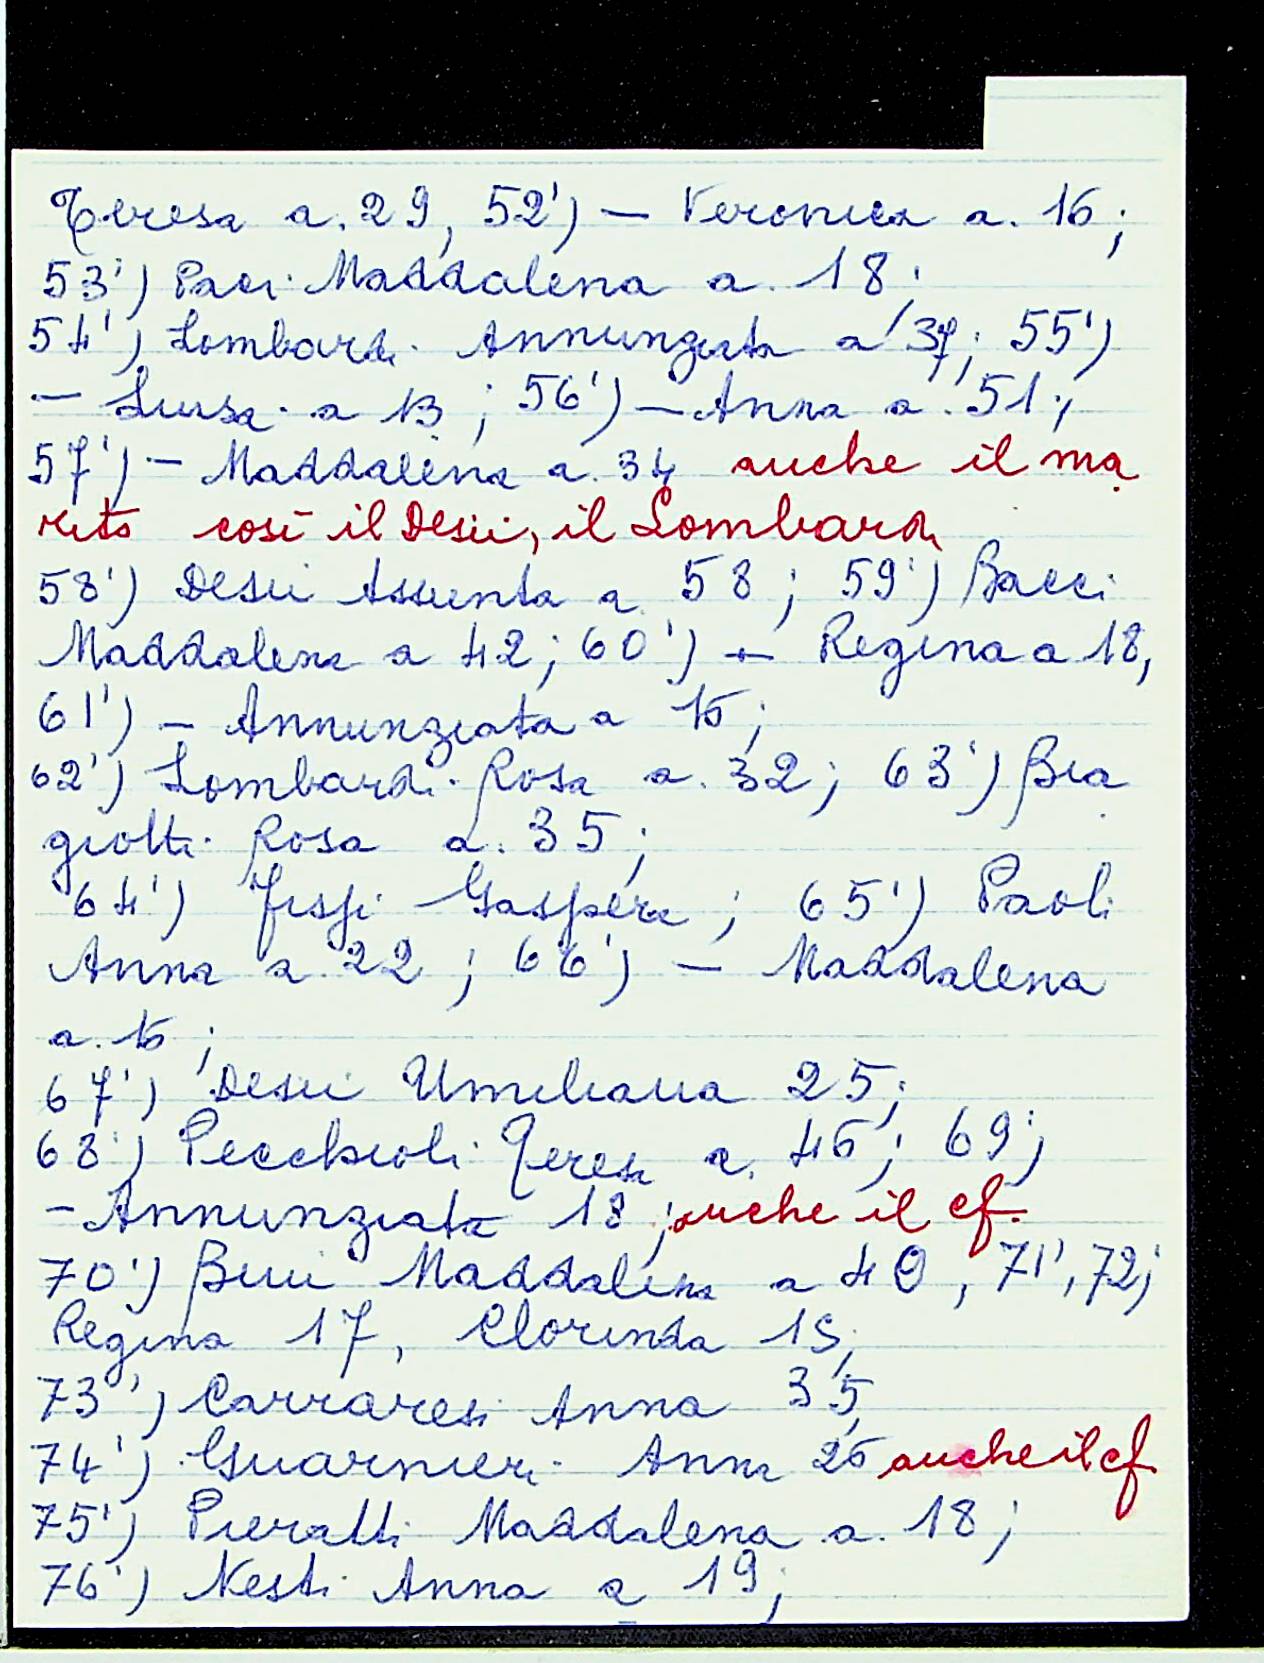 Teresa a. 29, 52') — Veronica a. 16;
53') Paci Maddalena a. 18;
54') Lombardi Annunziata a 37; 55')
— Luisa a 13; 56') — Anna a. 51;
57') — Maddalena a. 34 anche il ma
rito così il Desii, il Lombardi
58') Desii Assunta a 58; 59') Bacci
Maddalena a 42; 60') — Regina a 18,
61') — Annunziata a 15;
62') Lombardi Rosa a. 32; 63') Bia
giotti Rosa a. 35;
64') Gaspera; 65') Paoli
Anna a. 22; 66') — Maddalena
a. 15;
67') Desii Umiliana 25;
68') Pecchioli Teresa a. 46; 69')
— Annunziata 18; anche il cf.
70') Bini Maddalena a 40, 71', 72')
Regina 17, Clorinda 15;
73') Carraresi Anna 35,
74') Guarnieri Anna 26 anche il cf.
75') Pieratti Maddalena a. 18;
76') Nesti Anna a 19;